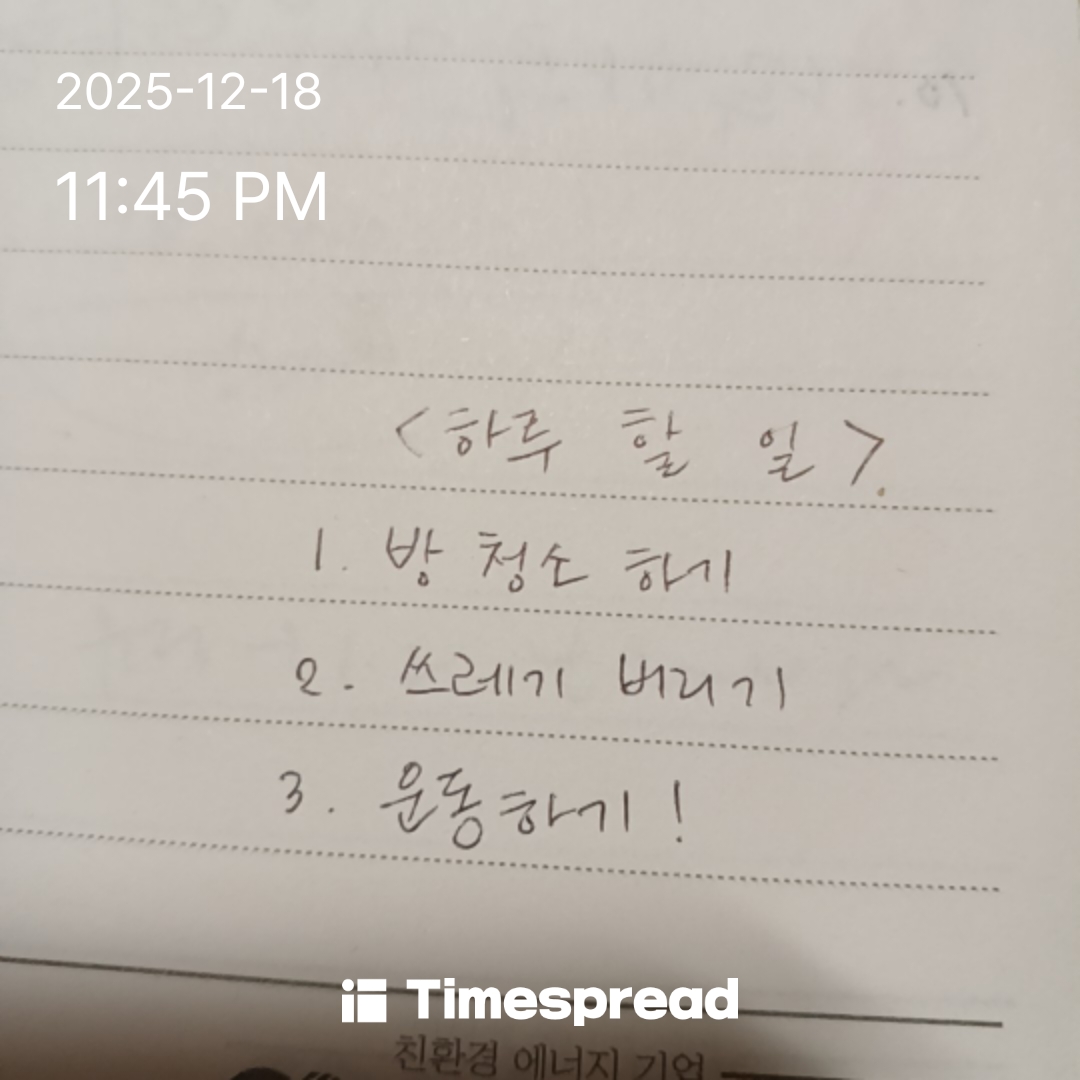 2025-12-18
11:45 PM
<하루 할 일>.
1. 방 청소 하기
2. 쓰레기 버리기
3. 운동하기!
Timespread
친환경 에너지 기업